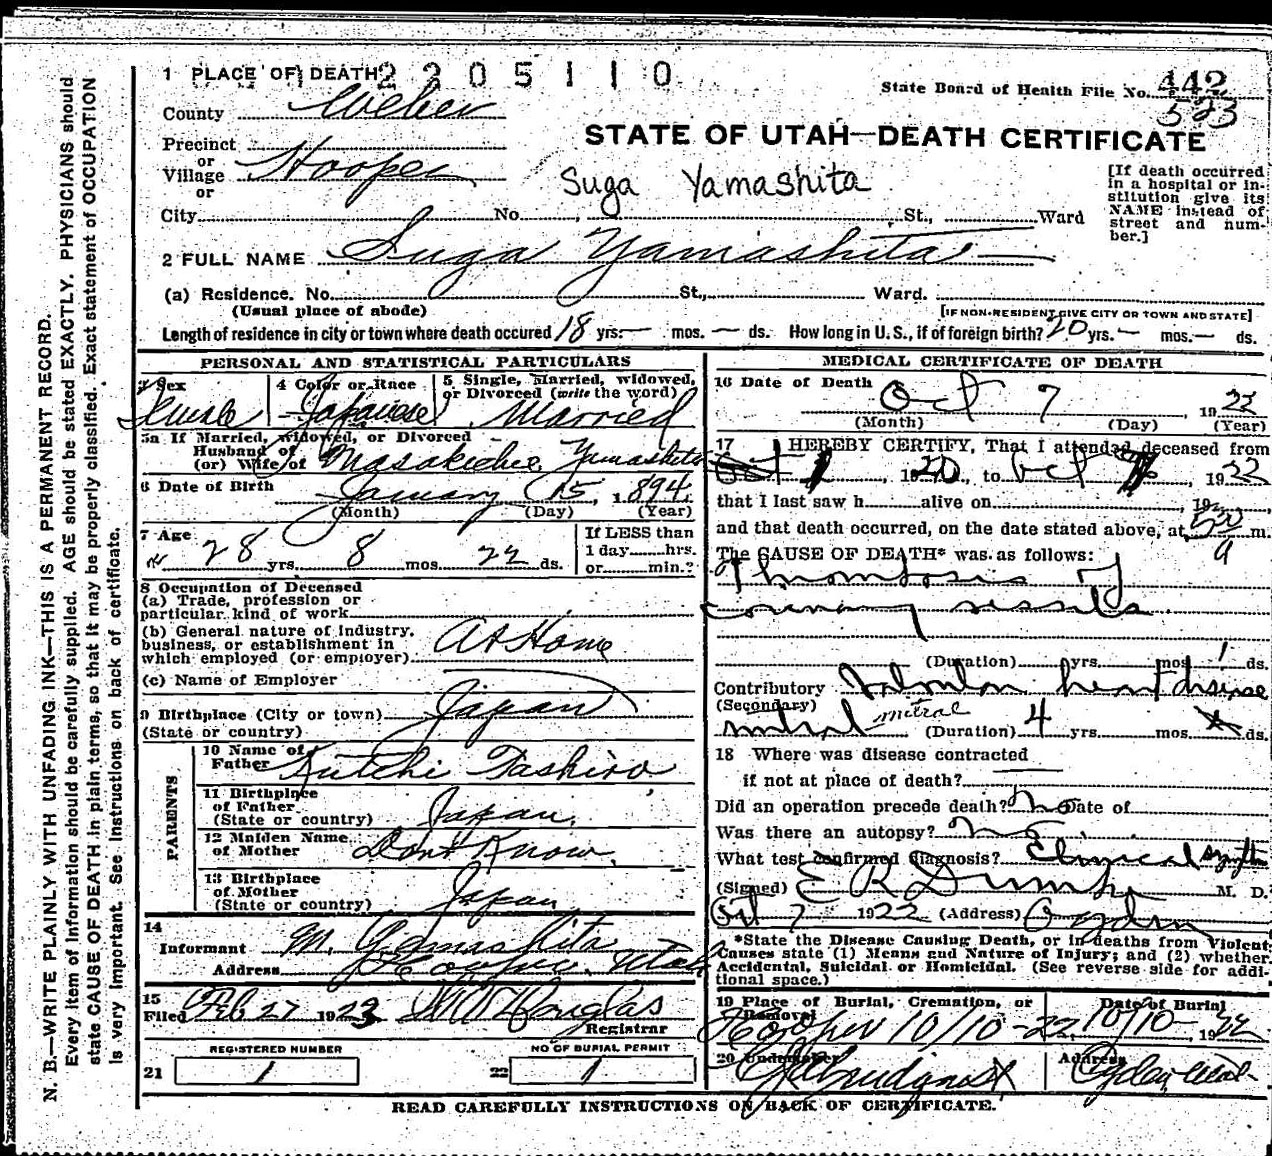 1 PLACE OF DEATH 2 2 0 5 1 1 0
County Weber
State Board of Health File No. 442
523
STATE OF UTAH—DEATH CERTIFICATE
Precinct
or
Village Hooper
or
Suga Yamashita
City No. St., Ward
[If death occurred in a hospital or institution give its NAME instead of street and number.]
2 FULL NAME Suga Yamashita
(a) Residence. No. St., Ward.
(Usual place of abode) [IF NON-RESIDENT GIVE CITY OR TOWN AND STATE]
Length of residence in city or town where death occured 18 yrs. — mos. — ds. How long in U. S., if of foreign birth? 20 yrs. — mos. — ds.
PERSONAL AND STATISTICAL PARTICULARS
3 Sex Female
4 Color or Race Japanese
5 Single, Married, widowed, or Divorced (write the word) Married
5a If Married, widowed, or Divorced
Husband of
(or) Wife of Yamashita
6 Date of Birth January 15, 1894
(Month) (Day) (Year)
7 Age 28 yrs. 8 mos. 22 ds.
If LESS than
1 day hrs.
or min.?
8 Occupation of Deceased
(a) Trade, profession or
particular kind of work
(b) General nature of industry,
business, or establishment in
which employed (or employer) At Home
(c) Name of Employer
9 Birthplace (City or town) Japan
(State or country)
PARENTS
10 Name of
Father Kutchi Tashiro
11 Birthplace
of Father
(State or country) Japan
12 Maiden Name
of Mother Dont Know
13 Birthplace
of Mother
(State or country) Japan
14
Informant M. Yamashita
Address Hooper, Utah
15
Filed Feb 27 1923 Douglas
Registrar
REGISTERED NUMBER NO OF BURIAL PERMIT
21 1 22 1
MEDICAL CERTIFICATE OF DEATH
16 Date of Death Oct 7, 1922
(Month) (Day) (Year)
17 I HEREBY CERTIFY, That I attended deceased from
Oct 1, 1920, to Oct 7, 1922
that I last saw h alive on , 19
and that death occurred, on the date stated above, at 5 m.
a
The CAUSE OF DEATH* was as follows:
Thrombosis of
coronary vessels
(Duration) yrs. mos. 1 ds.
Contributory Valvular heart disease
(Secondary)
mitral mitral (Duration) 4 yrs. mos. ds.
18 Where was disease contracted
if not at place of death?
Did an operation precede death? no Date of
Was there an autopsy? no
What test confirmed diagnosis? Clinical
(Signed) E R Dumke M. D.
Oct 7 1922 (Address) Ogden
*State the Disease Causing Death, or in deaths from Violent
Causes state (1) Means and Nature of Injury; and (2) whether
Accidental, Suicidal or Homicidal. (See reverse side for addi-
tional space.)
19 Place of Burial, Cremation, or Removal Date of Burial
Hooper 10/10-22 10/10-, 1922
20 Undertaker Address
Ogden Utah
READ CAREFULLY INSTRUCTIONS ON BACK OF CERTIFICATE.
N. B.—WRITE PLAINLY WITH UNFADING INK—THIS IS A PERMANENT RECORD.
Every item of information should be carefully supplied. AGE should be stated EXACTLY. PHYSICIANS should
state CAUSE OF DEATH in plain terms, so that it may be properly classified. Exact statement of OCCUPATION
is very important. See instructions on back of certificate.